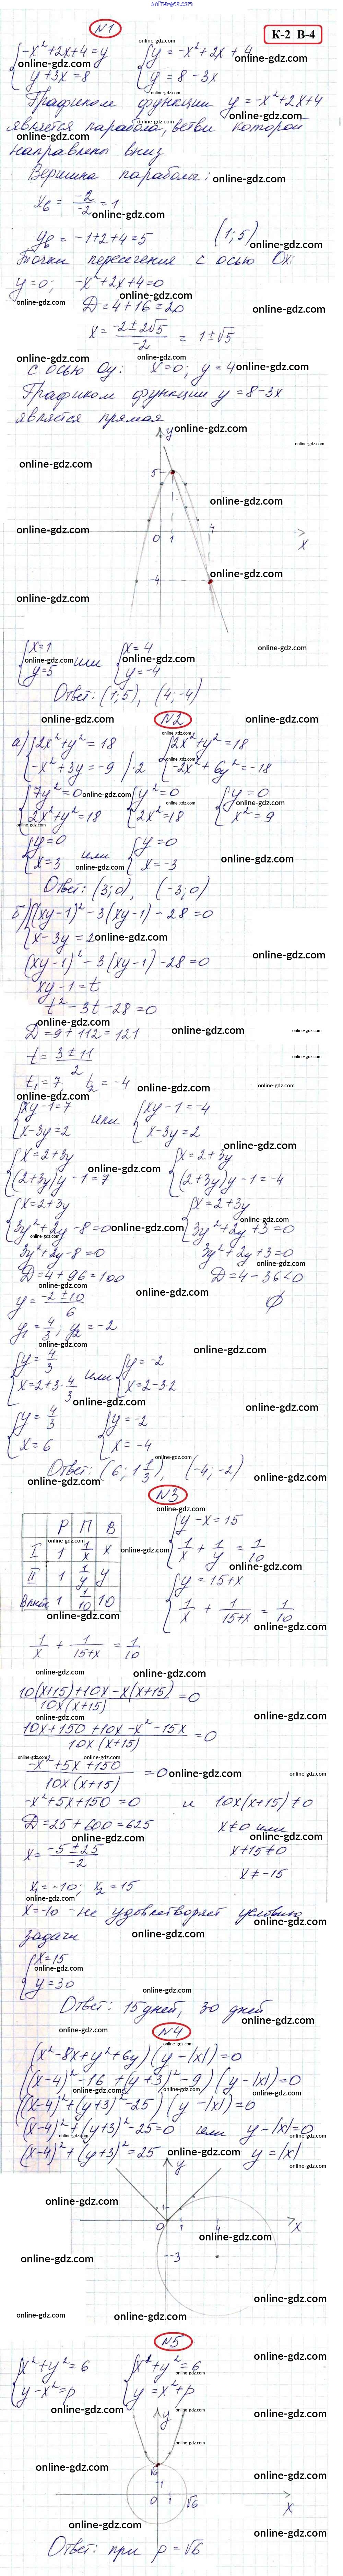 online-gdz.com
№1
К-2 В-4
{-x²+2x+4=y {y=-x²+2x+4
{y+3x=8 {y=8-3x
Графиком функции y=-x²+2x+4
является парабола, ветви которой
направлены вниз
Вершина параболы:
xв = -2/-2 = 1
yв = -1+2+4=5 (1;5)
Точки пересечения с осью Ox:
y=0; -x²+2x+4=0
D=4+16=20
x= (-2±2√5)/-2 = 1±√5
с осью Oy: x=0; y=4
Графиком функции y=8-3x
является прямая
y
5
0 1 4
x
-4
{x=1 или {x=4
{y=5 {y=-4
Ответ: (1;5), (4;-4)
№2
а) {2x²+y²=18 {2x²+y²=18
{-x²+3y=-9 |·2 {-2x²+6y²=-18
{7y²=0 {y²=0 {y=0
{2x²+y²=18 {2x²=18 {x²=9
{y=0 или {y=0
{x=3 {x=-3
Ответ: (3;0), (-3;0)
б) {(xy-1)²-3(xy-1)-28=0
{x-3y=2
(xy-1)²-3(xy-1)-28=0
xy-1=t
t²-3t-28=0
D=9+112=121
t= (3±11)/2
t₁=7 t₂=-4
{xy-1=7 или {xy-1=-4
{x-3y=2 {x-3y=2
{x=2+3y {x=2+3y
{(2+3y)y-1=7 {(2+3y)y-1=-4
{x=2+3y {x=2+3y
{3y²+2y-8=0 {3y²+2y+3=0
3y²+2y-8=0 3y²+2y+3=0
D=4+96=100 D=4-36<0
y= (-2±10)/6 ∅
y₁=4/3; y₂=-2
{y=4/3 или {y=-2
{x=2+3·4/3 {x=2-3·2
{y=4/3 {y=-2
{x=6 {x=-4
Ответ: (6; 1 1/3), (-4;-2)
№3
Р П В
I 1 1/x x
II 1 1/y y
Вместе 1 1/10 10
{y-x=15
{1/x + 1/y = 1/10
{y=15+x
{1/x + 1/(15+x) = 1/10
1/x + 1/(15+x) = 1/10
(10(x+15)+10x-x(x+15))/(10x(x+15)) =0
(10x+150+10x-x²-15x)/(10x(x+15)) =0
(-x²+5x+150)/(10x(x+15)) =0
-x²+5x+150=0 и 10x(x+15)≠0
D=25+600=625 x≠0 или
x= (-5±25)/-2 x+15≠0
x≠-15
x₁=-10; x₂=15
x=-10 - не удовлетворяет условию
задачи
{x=15
{y=30
Ответ: 15 дней, 30 дней
№4
(x²-8x+y²+6y)(y-|x|)=0
((x-4)²-16+(y+3)²-9)(y-|x|)=0
((x-4)²+(y+3)²-25)(y-|x|)=0
(x-4)²+(y+3)²-25=0 или y-|x|=0
(x-4)²+(y+3)²=25 y=|x|
y
1
0 1 4 x
-3
№5
{x²+y²=6 {x²+y²=6
{y-x²=p {y=x²+p
y
√6
1
0 1 √6 x
Ответ: при p=√6